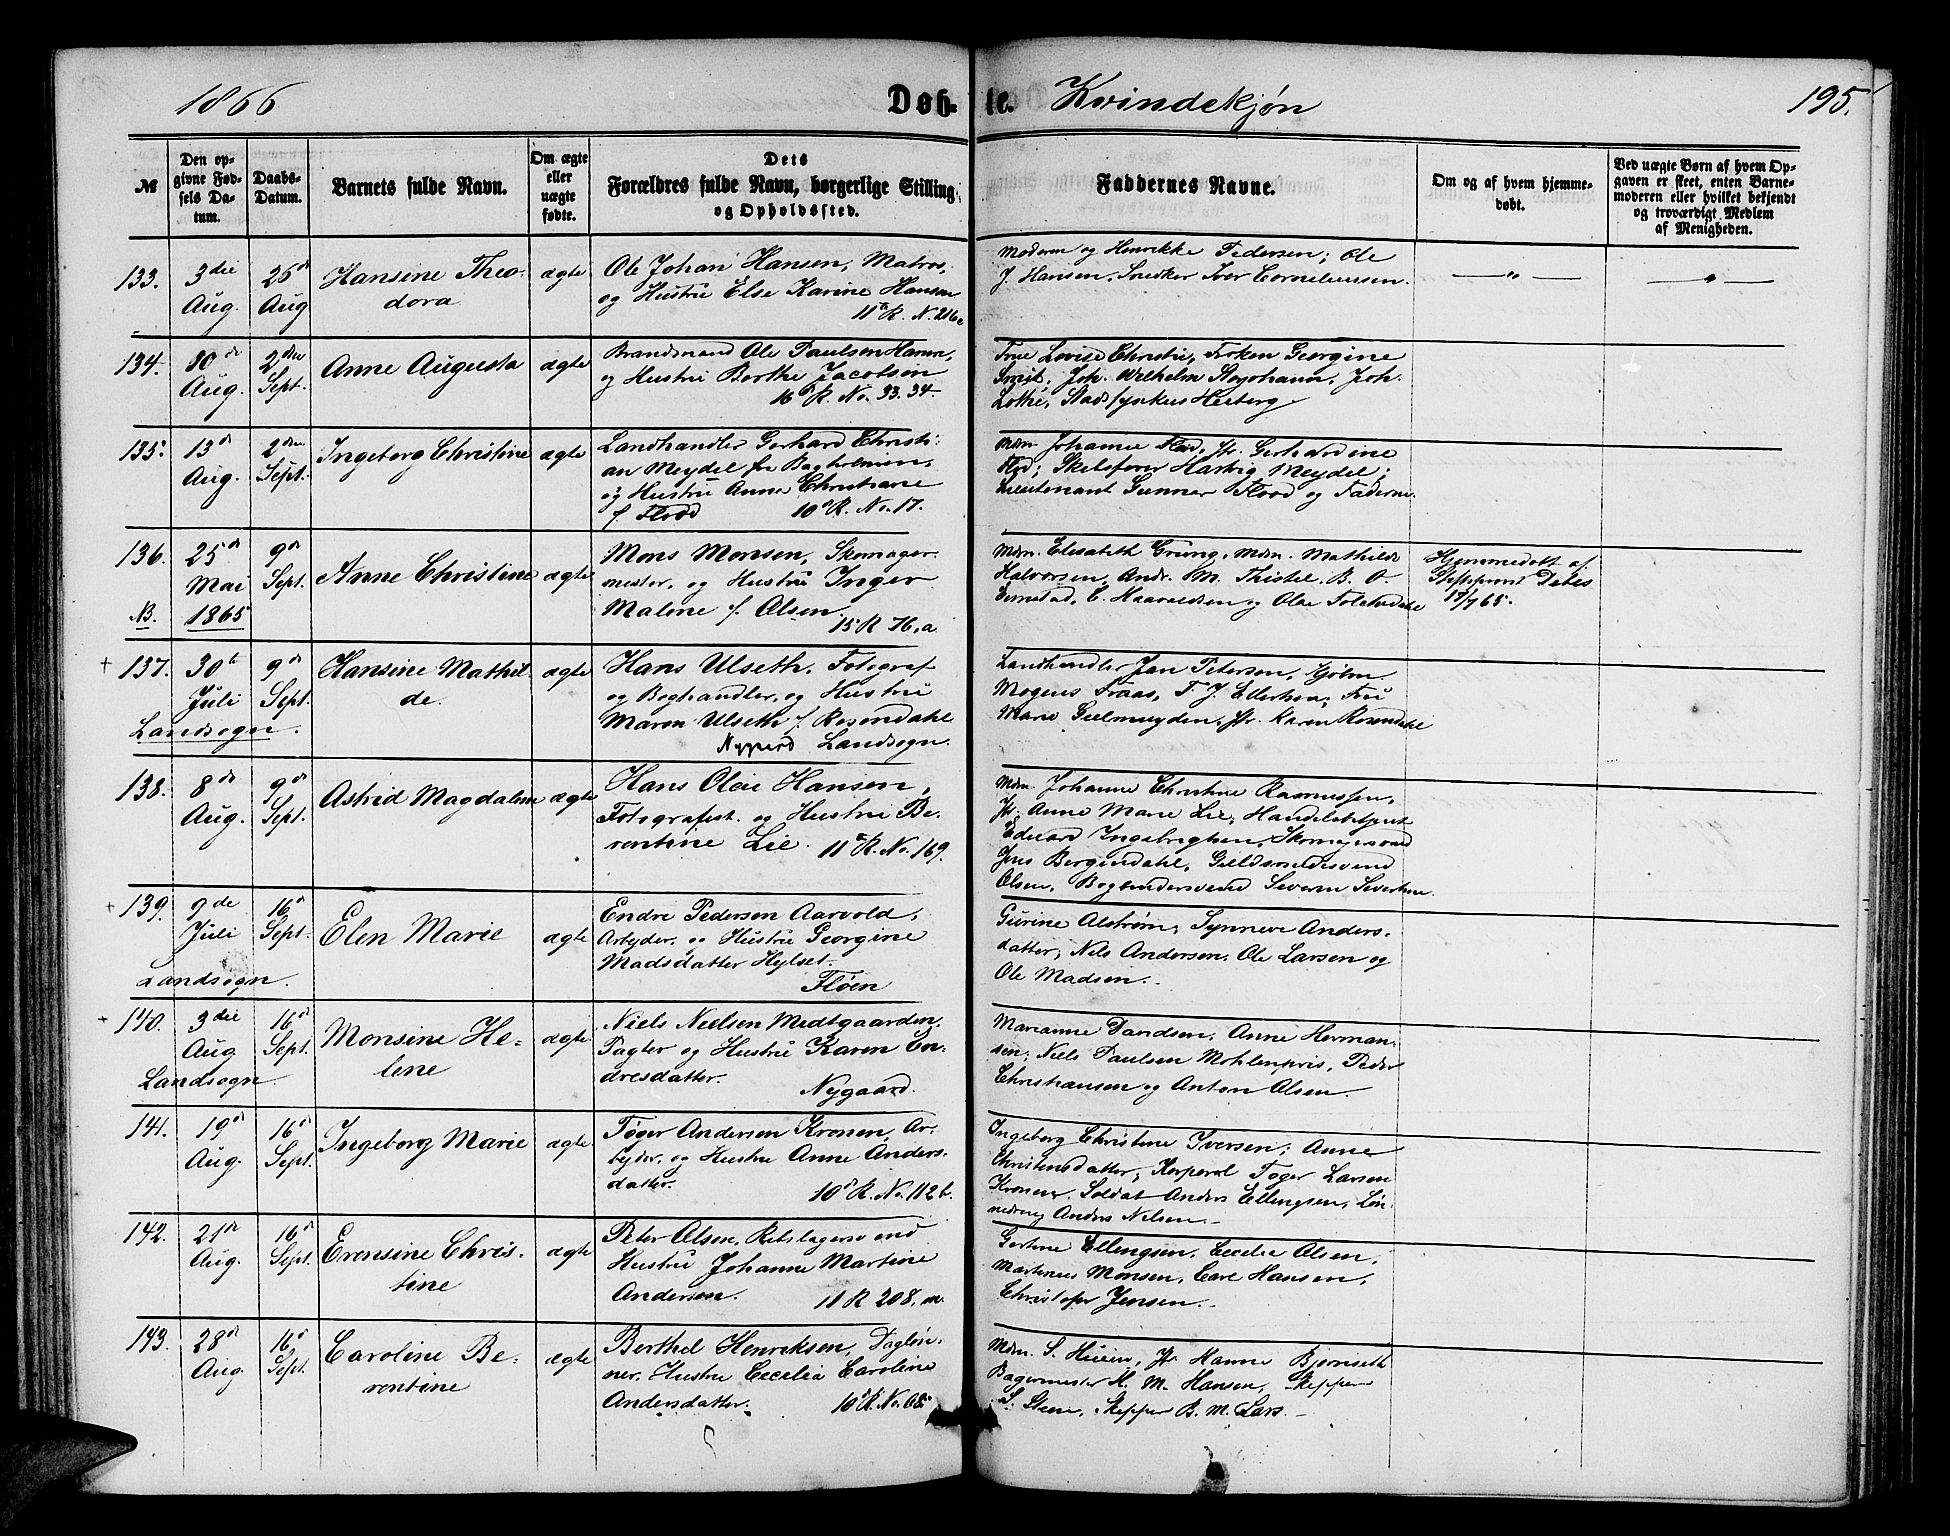 1866 Døb- te. Kvindekjøn 195.
№
Den op-
givne Fød-
sels Da-
tum.
Daabs-
Datum.
Barnets fulde Navn.
Om ægte
eller
uægte
fødte.
Dets
Forældres fulde Navn, borgerlige Stilling
og Opholdssted.
Faddernes Navne.
Om og af hvem hjemme-
døbt.
Ved uægte Børn af hvem Op-
gaven er skeet, enten Barne-
moderen eller hvilket bekjendt
og troværdigt Medlem
af Menigheden.
133. 3die Aug. 26de Aug
Hansine Theo-
dora
ægte
Ole Johan Hansen, Matros,
og Hustru Else Karine Hansen
11te R. N. 216c
Moderen og Henrikke Pedersen; Ole
J. Hansen, Snedker Iver Corneliussen.
134. 10de Aug. 2den Sept.
Anne Augusta
ægte
Brandmand Ole Paulsen
og Hustru Berthe Jacobsen
16de R. No. 33. 34.
Frue Lovise Christie, Frøken Georgine
Smit, Joh. Wilhelm Joh.
Lothe, Stadsfysikus Heiberg
135. 13de Aug. 2den Sept.
Ingeborg Christine
ægte
Landhandler Gerhard Christi-
an Meydel fra Bagholmen,
og Hustru Anna Christiane
f. Flood 10de R. No. 17.
Mdm. Johanne Flood, Jfr. Gerhardine
Flood; Skibsfører Hartvig Meydel;
Lieutenant Gunner Flood og Faderen.
136. 25de Mai 1865 9de Sept.
NB.
Anne Christine
ægte
Mons Monsen, Skomager-
mester, og Hustru Inger
Malene f. Olsen.
15 R 76, a
Mdm. Elisabeth Grung, Mdm. Mathilde
Halvorsen, Andr. M. Thistel, B. O.
E. Haavaldsen og Olae
Hjemmedøbt af
Stiftsprovst Debes
17/7 65.
137. 30te Juli 9de Sept.
Landsogn.
Hansine Mathil-
de.
ægte
Hans Ulseth, Fotograf
og Boghandler, og Hustru
Maren Ulseth f. Rosendahl
Nygaard Landsogn.
Landhandler Jan Petersen, Kjøbm.
Mogens Fraas, F. J. Ellerhusen, Fru
Marie Geelmuyden, Jfr. Karen Rosendahl
138. 8de Aug. 9de Sept.
Astrid Magdalene
ægte
Hans Olai Hansen,
Fotografist. og Hustru Be-
rentine Lie. 11te R. No. 169.
Mdm. Johanne Christine Rasmussen,
Jfr. Anne Marie Lie, Handelsbetjent
Eduard Ingebrigtsen, Skomagersvend
Jens Bergendahl, Guldsmedsvend
Olsen, Bogbindersvend Severin Severtsen.
139. 9de Juli 16de Sept.
Landsogn.
Elen Marie
ægte
Endre Pedersen Aarvold,
Arbejder, og Hustru Georgine
Madsdatter Hylset.
Fløen
Gurine Alstrøm, Synneve Anders-
datter, Nils Andersen, Ole Larsen og
Ole Madsen.
140. 3die Aug 16de Sept.
Landsogn.
Monsine He-
lene
ægte
Niels Nielsen Midtgaarden,
Pagter og Hustru Karen En-
dresdatter.
Nygaard.
Marianne Davidsen, Anne Herman-
sen; Niels Paulsen Møhlenpris, Peder
Christiansen og Anton Olsen.
141. 19de Aug. 16de Sept.
Ingeborg Marie
ægte
Tøger Andersen Kronen, Ar-
bejder, og Hustru Anne Anders-
datter. 10de R. No. 112b.
Ingeborg Christine Iversen; Anne
Christensdatter, Korporal Tøger Larsen
Kronen. Soldat Anders Ellingsen, Løn-
Anders Nilsen.
142. 21de Aug. 16de Sept.
Erensine Chris-
tine
ægte
Peter Olsen, Rebslagersvend
Hustru Johanne Martine
Andersen. 11 R 208, m.
Gertine Ellingsen, Cecilie Olsen,
Martinus Monsen, Carl Hansen,
Christofer Jensen.
143. 28de Aug 16de Sept.
Caroline Be-
rentine
ægte
Berthel Henriksen, Dagløn-
ner, Hustru Cecelia Caroline
Andersdatter. 10de R. No. 68
Mdm. S. Jfr. Hanne Bjørnseth
Bagermester H. M. Hansen, Skipper
S. Steen, Skipper B. M. Lars.